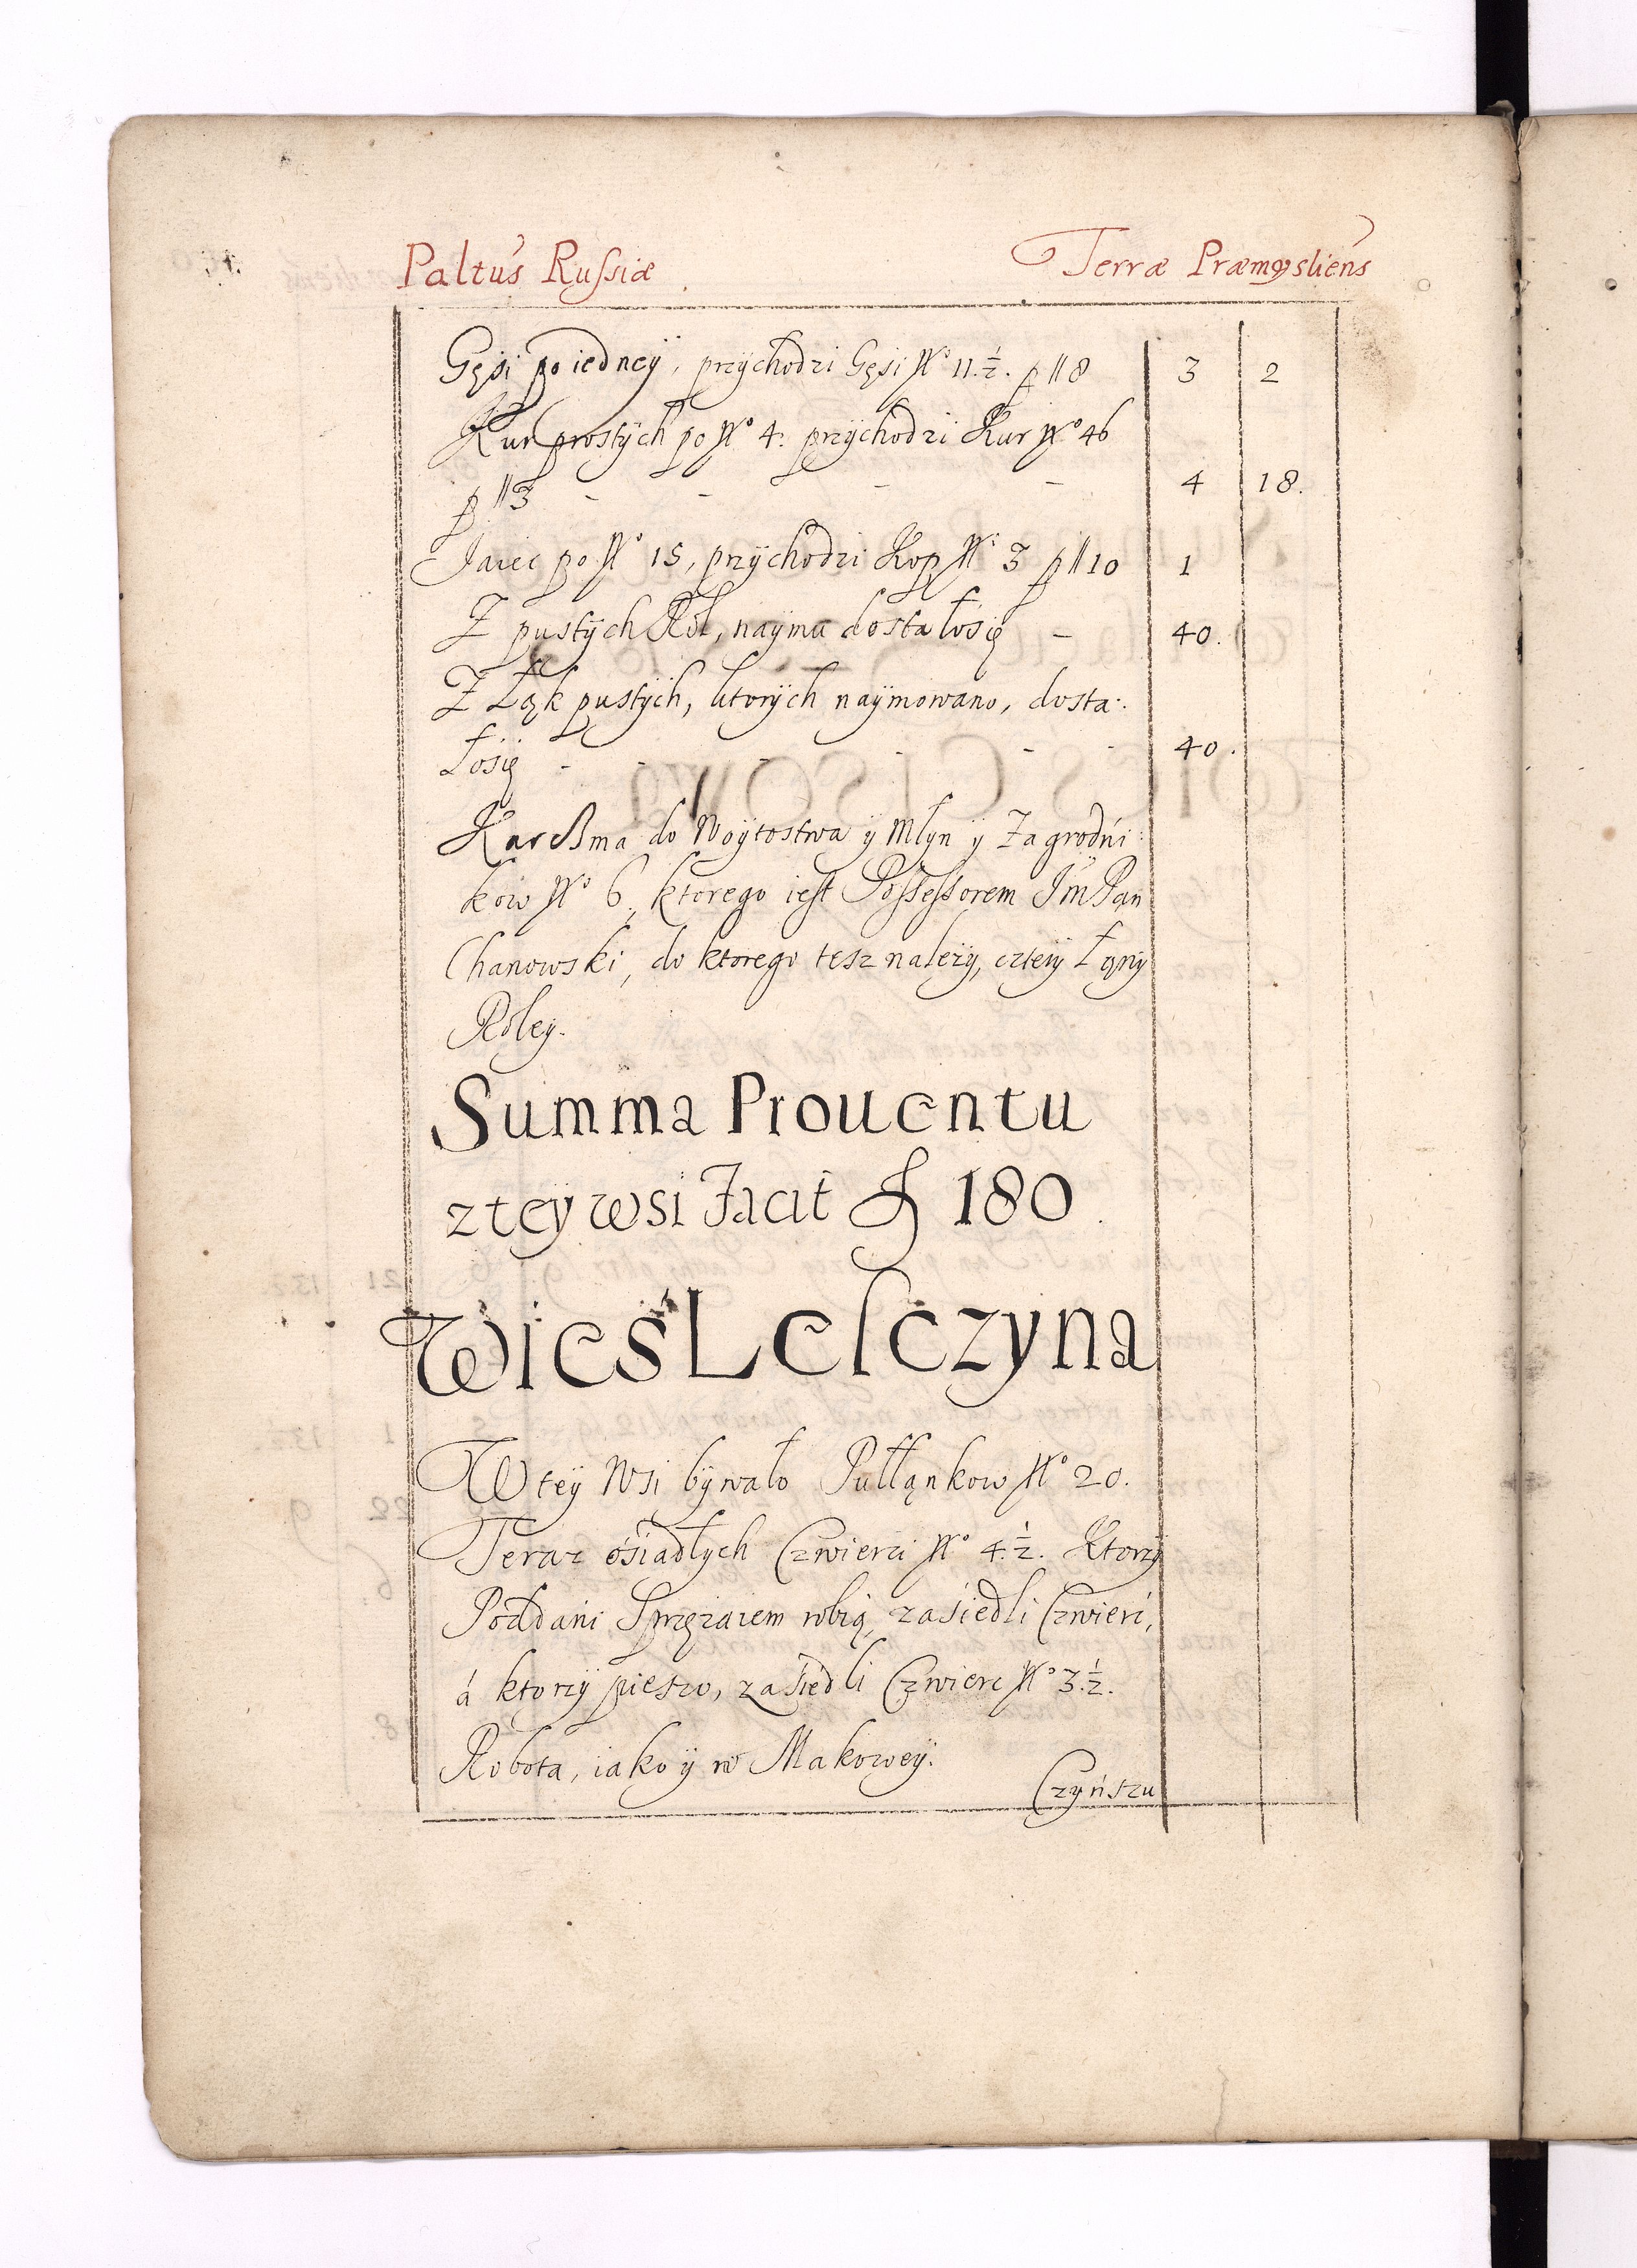 Paltus Russiæ Terræ Præmysliens
Gęsi po iedneÿ, przÿchodzi Gęsi No 11.½. p ll 8 3 2
Kur prostÿch po No 4. przÿchodzi Kur No 46
p ll 3 - - - - 4 18.
Jaiec po No 15, przÿchodzi Kop No 3 p ll 10 1
Z pustÿch Ról, naÿmu dostałosię - 40.
Z Łąk pustÿch, ktorÿch naÿmowano, dosta:
łosię - - - - - - 40.
Karcżma do Woÿtostwa ÿ Młyn ÿ Zagrodni:
kow No 6, ktorego iest Possessorem Jm Pan
Chanowski, do ktorego tesz należy, czteÿ Łąny
Roley.
Summa Prouentu
z teÿ wsi Facit ƒ 180.
Wieś Lelczyna
W teÿ Wsi bÿwało Pułłąnkow No 20.
Teraz ośiadłych Czwierci No 4.½. Ktorzÿ
Poddani Sprzężaiem robią, zaśiedli Czwierć,
á ktorzÿ pieszo, zaśiedli Czwierc No 3.½.
Robota, iako ÿ w Makoweÿ.
Czyńszu